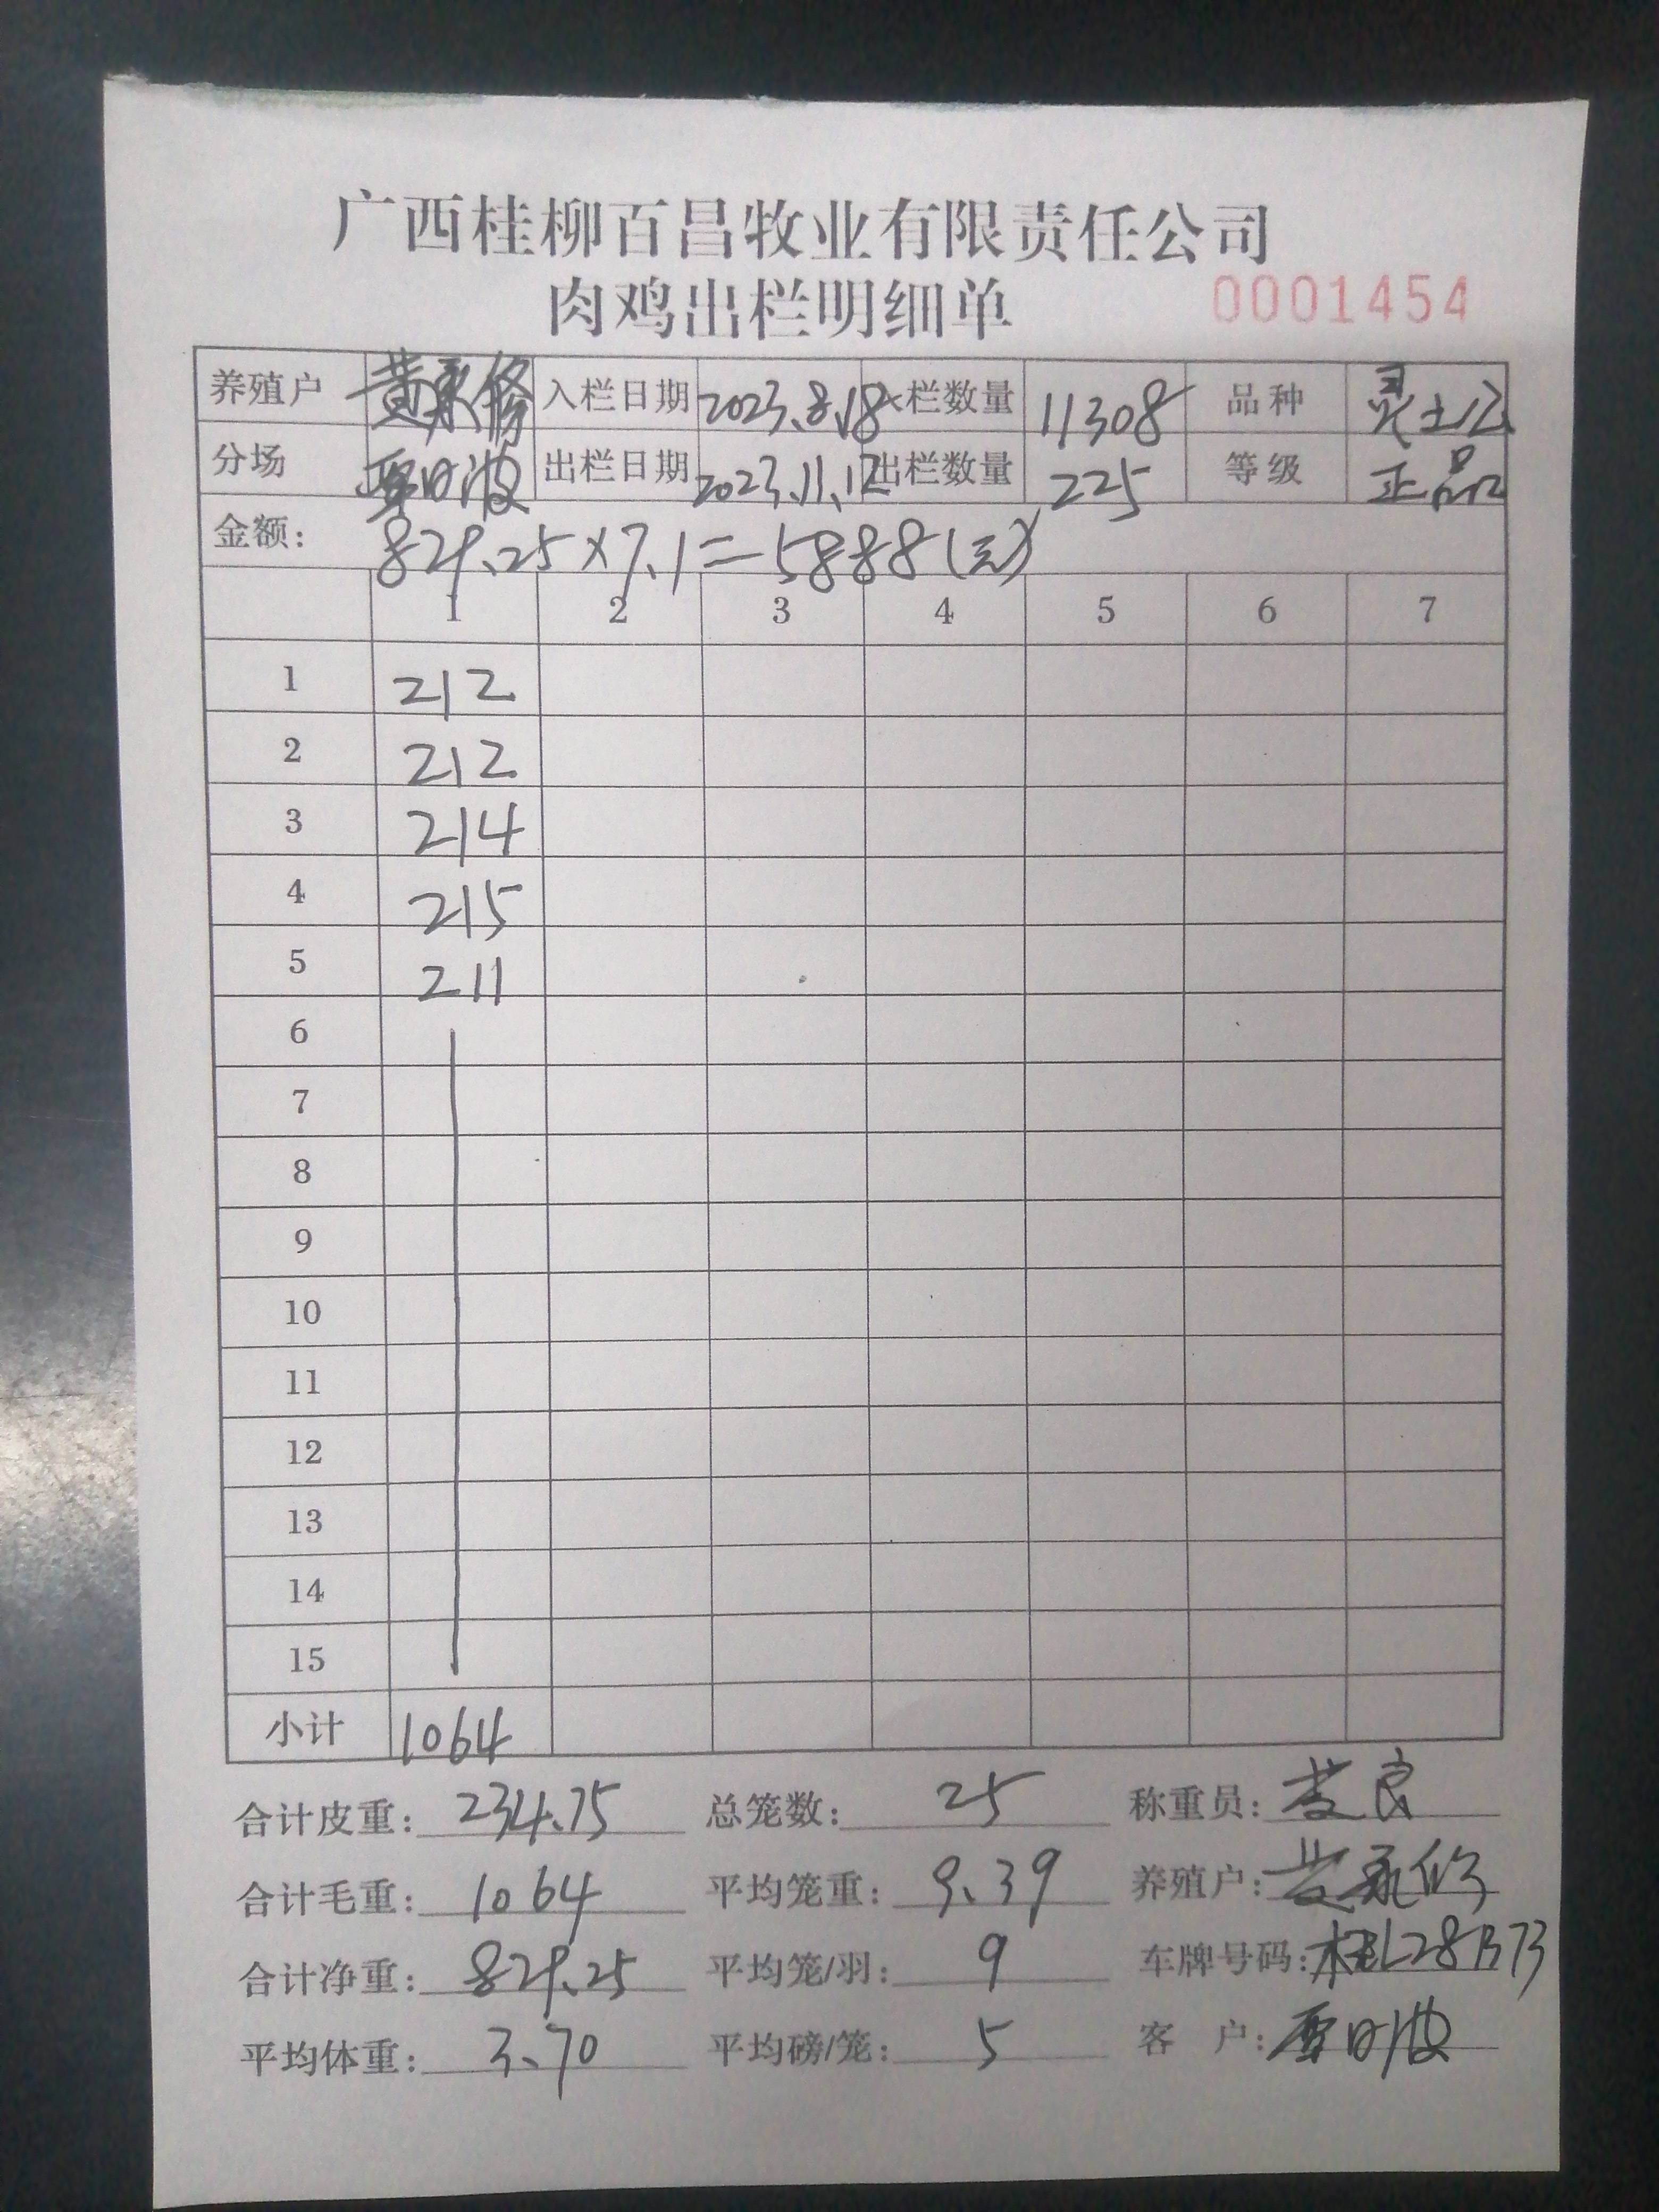 广西桂柳百昌牧业有限责任公司
肉鸡出栏明细单 0001454
养殖户 黄永修 入栏日期 2023.8.18 栏数量 11308 品种 灵土公
分场 覃日波 出栏日期 2023.11.12 出栏数量 225 等级 正品
金额: 829.25×7.1=5888(元)
1 2 3 4 5 6 7
1 212
2 212
3 214
4 215
5 211
6
7
8
9
10
11
12
13
14
15
小计 1064
合计皮重: 234.75 总笼数: 25 称重员:
合计毛重: 1064 平均笼重: 9.39 养殖户: 黄永修
合计净重: 829.25 平均笼/羽: 9 车牌号码: 桂L28B73
平均体重: 3.70 平均磅/笼: 5 客 户: 覃日波